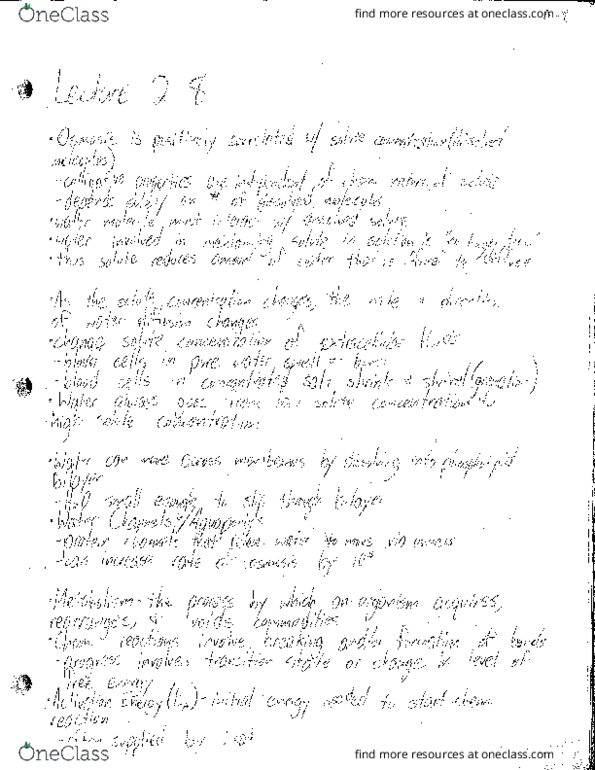 OneClass
find more resources at oneclass.com
Lecture 28
• Osmosis is positively correlated w/ solute concentration (dissolved
molecules)
- colligative properties are independent of chem nature of solute
- depends only on # of dissolved molecules
• water molecule must interact w/ dissolved solute
• water involved in maintaining solute in solution is
• thus solute reduces amount of water that is "free" to diffuse
• As the solute concentration changes, the rate + direction
of water diffusion changes
• change solute concentration of extracellular fluids
- blood cells in pure water swell + burst
- blood cells in concentrated salt shrink + shrivel
• Water always goes from low solute concentration to
high solute concentration
• Water can move across membranes by sneaking into phospholipid
bilayer
- H2O small enough to slip though bilayer
• Water Channels/Aquaporins
- protein channels that allow water to move via osmosis
- can increase rate of osmosis by
• Metabolism - the process by which an organism acquires,
rearranges, & voids commodities
• Chem reactions involve breaking and/or formation of bonds
- progress involves transition state or change in level of
free energy
• Activation Energy (EA) - initial energy needed to start chem
reaction
- often supplied by heat
OneClass
find more resources at oneclass.com